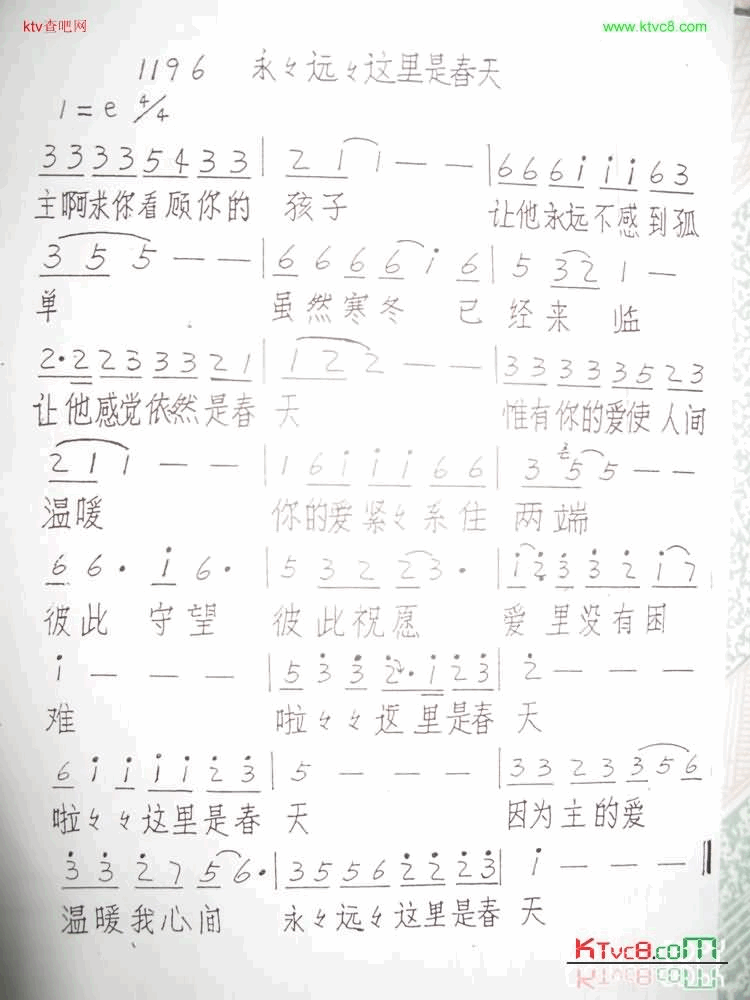 ktv查吧网 www.ktvc8.com
1196 永々远々这里是春天
1=e 4/4
3 3 3 3 5 4 3 3 | 2 1 1 — — | 6 6 6 i i i 6 3
主啊求你看顾你的 孩子 让他永远不感到孤
3 5 5 — — | 6 6 6 6 i 6 | 5 3 2 1 —
单 虽然寒冬 已经来临
2·2 2 3 3 3 2 1 | 1 2 2 — — | 3 3 3 3 3 5 2 3
让他感觉依然是春 天 惟有你的爱使人间
2 1 1 — — | 1 6 i i i 6 6 | 3 5 5 — —
温暖 你的爱紧々系住 两端
6 6· i 6· | 5 3 2 2 3· | i 2 3 3 2 i 7
彼此 守望 彼此祝愿 爱里没有困
i — — — | 5 3 3 2· i 2 3 | 2 — — —
难 啦々々这里是春 天
6 i i i i 2 3 | 5 — — — | 3 3 2 3 3 5 6
啦々々这里是春 天 因为主的爱
3 3 2 7 5 6· | 3 5 5 6 2 2 2 3 | i — — — ‖
温暖我心间 永々远々这里是春 天
KTVC8.COM